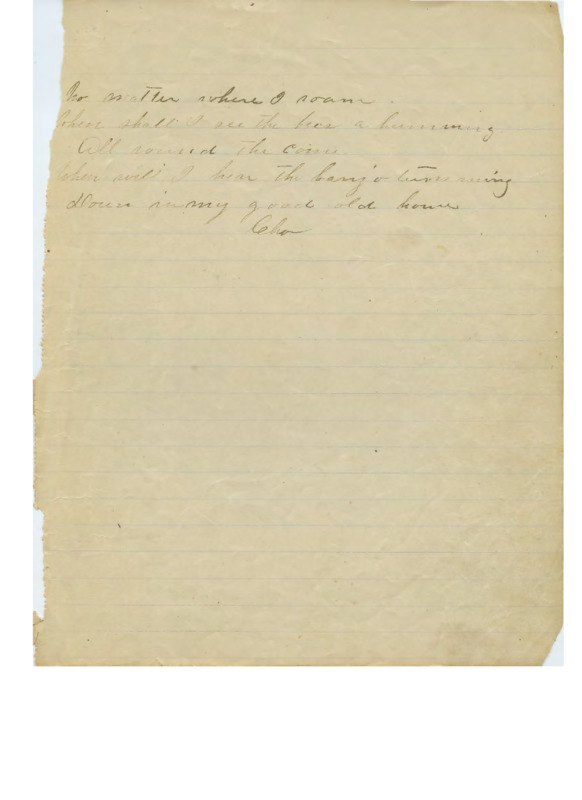 No matter where I roam.
When shall I see the bees a humming
All round the comb
When will I hear the banjo tumming
Down in my good old home
Cho